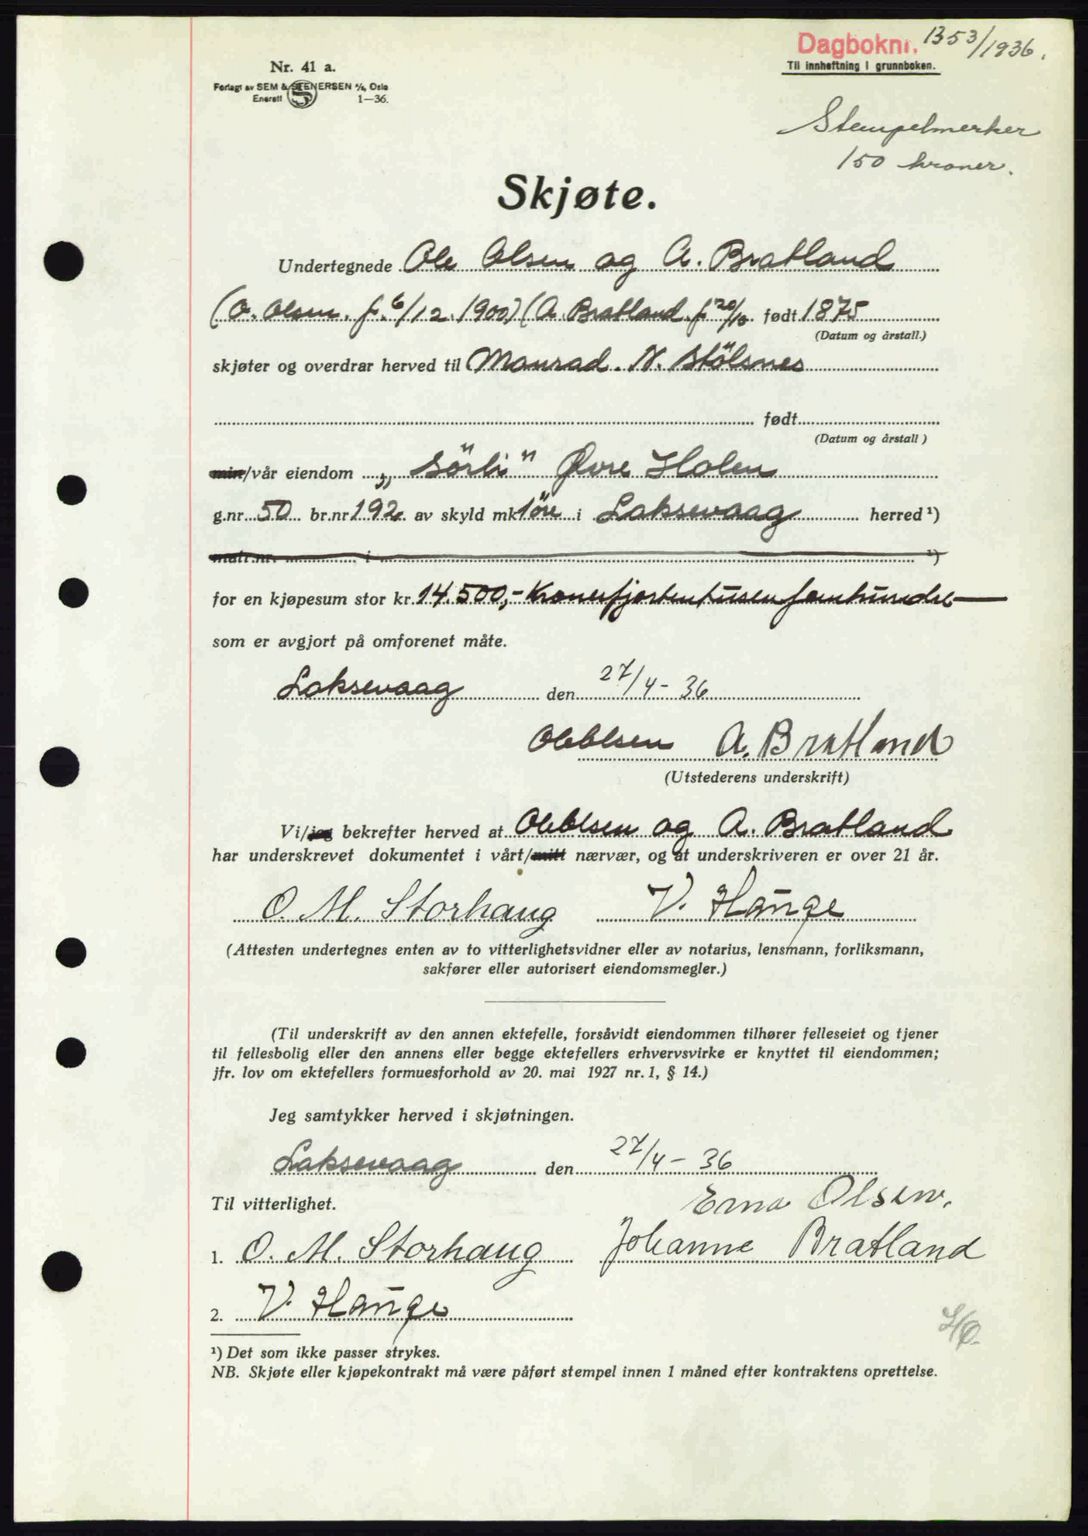 Dagboknr. 1353/1936.
Til innheftning i grunnboken.
Nr. 41 a.
Forlagt av SEM & STENERSEN A/S, Oslo
Enerett 1—36.
Stempelmerker
150 kroner.
Skjøte.
Undertegnede Ole Olsen og A. Bratland
(O. Olsen. f. 6/12. 1900) (A. Bratland. f 20/10. født 1875
(Datum og årstall.)
skjøter og overdrar herved til Monrad. N. Stölsnes
født
(Datum og årstall)
min/vår eiendom „Sörli" Øvre Holen
g.nr. 50 br.nr 192 av skyld mk 1 öre i Laksevaag herred ¹)
matr.nr. i ¹)
for en kjøpesum stor kr. 14.500,- Kroner fjortentusenfemhundre
som er avgjort på omforenet måte.
Laksevaag den 27/4-36
Ole Olsen A. Bratland
(Utstederens underskrift)
Vi/jeg bekrefter herved at Ole Olsen og A. Bratland
har underskrevet dokumentet i vårt/mitt nærvær, og at underskriveren er over 21 år.
O. M. Storhaug V. Hauge
(Attesten undertegnes enten av to vitterlighetsvidner eller av notarius, lensmann, forliksmann,
sakfører eller autorisert eiendomsmegler.)
(Til underskrift av den annen ektefelle, forsåvidt eiendommen tilhører felleseiet og tjener
til fellesbolig eller den annens eller begge ektefellers erhvervsvirke er knyttet til eiendommen;
jfr. lov om ektefellers formuesforhold av 20. mai 1927 nr. 1, § 14.)
Jeg samtykker herved i skjøtningen.
Laksevaag den 27/4-36
Til vitterlighet. Erna Olsen.
1. O. M. Storhaug Johanne Bratland
2. V. Hauge
¹) Det som ikke passer strykes.
NB. Skjøte eller kjøpekontrakt må være påført stempel innen 1 måned efter kontraktens oprettelse.